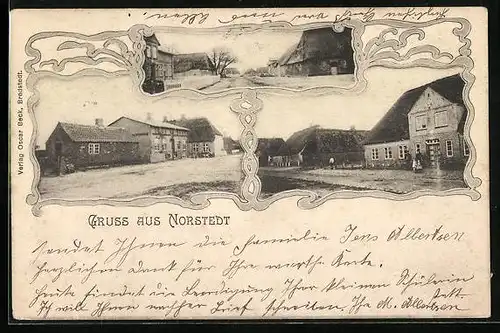 Verlag Oscar Beck, Bredstedt.
GRUSS AUS NORSTEDT
sendet Ihnen die Familie Jens Albertsen
herzlichen Dank für Ihre werthe Karte.
Heute findet die Beerdigung Ihrer kleinen Schülerin
statt. Ich will Ihnen nachher Brief schreiben. Ihr M. Albertsen